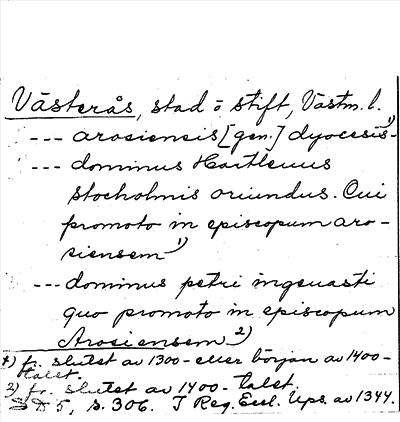 Västerås, stad o stift, Västm. l.
--- arosiensis [gen.] dyocesis 1)
--- dominus Hartleuus
stocholmis oriundus. Cui
promoto in episcopum aro-
siensem 1)
--- dominus petri ingeuasti
quo promoto in episcopum
Arosiensem 2)
1) fr. slutet av 1300- eller början av 1400-
talet.
2) fr. slutet av 1400-talet.
SD 5, s. 306. I Reg. Eccl. Ups. av 1344.